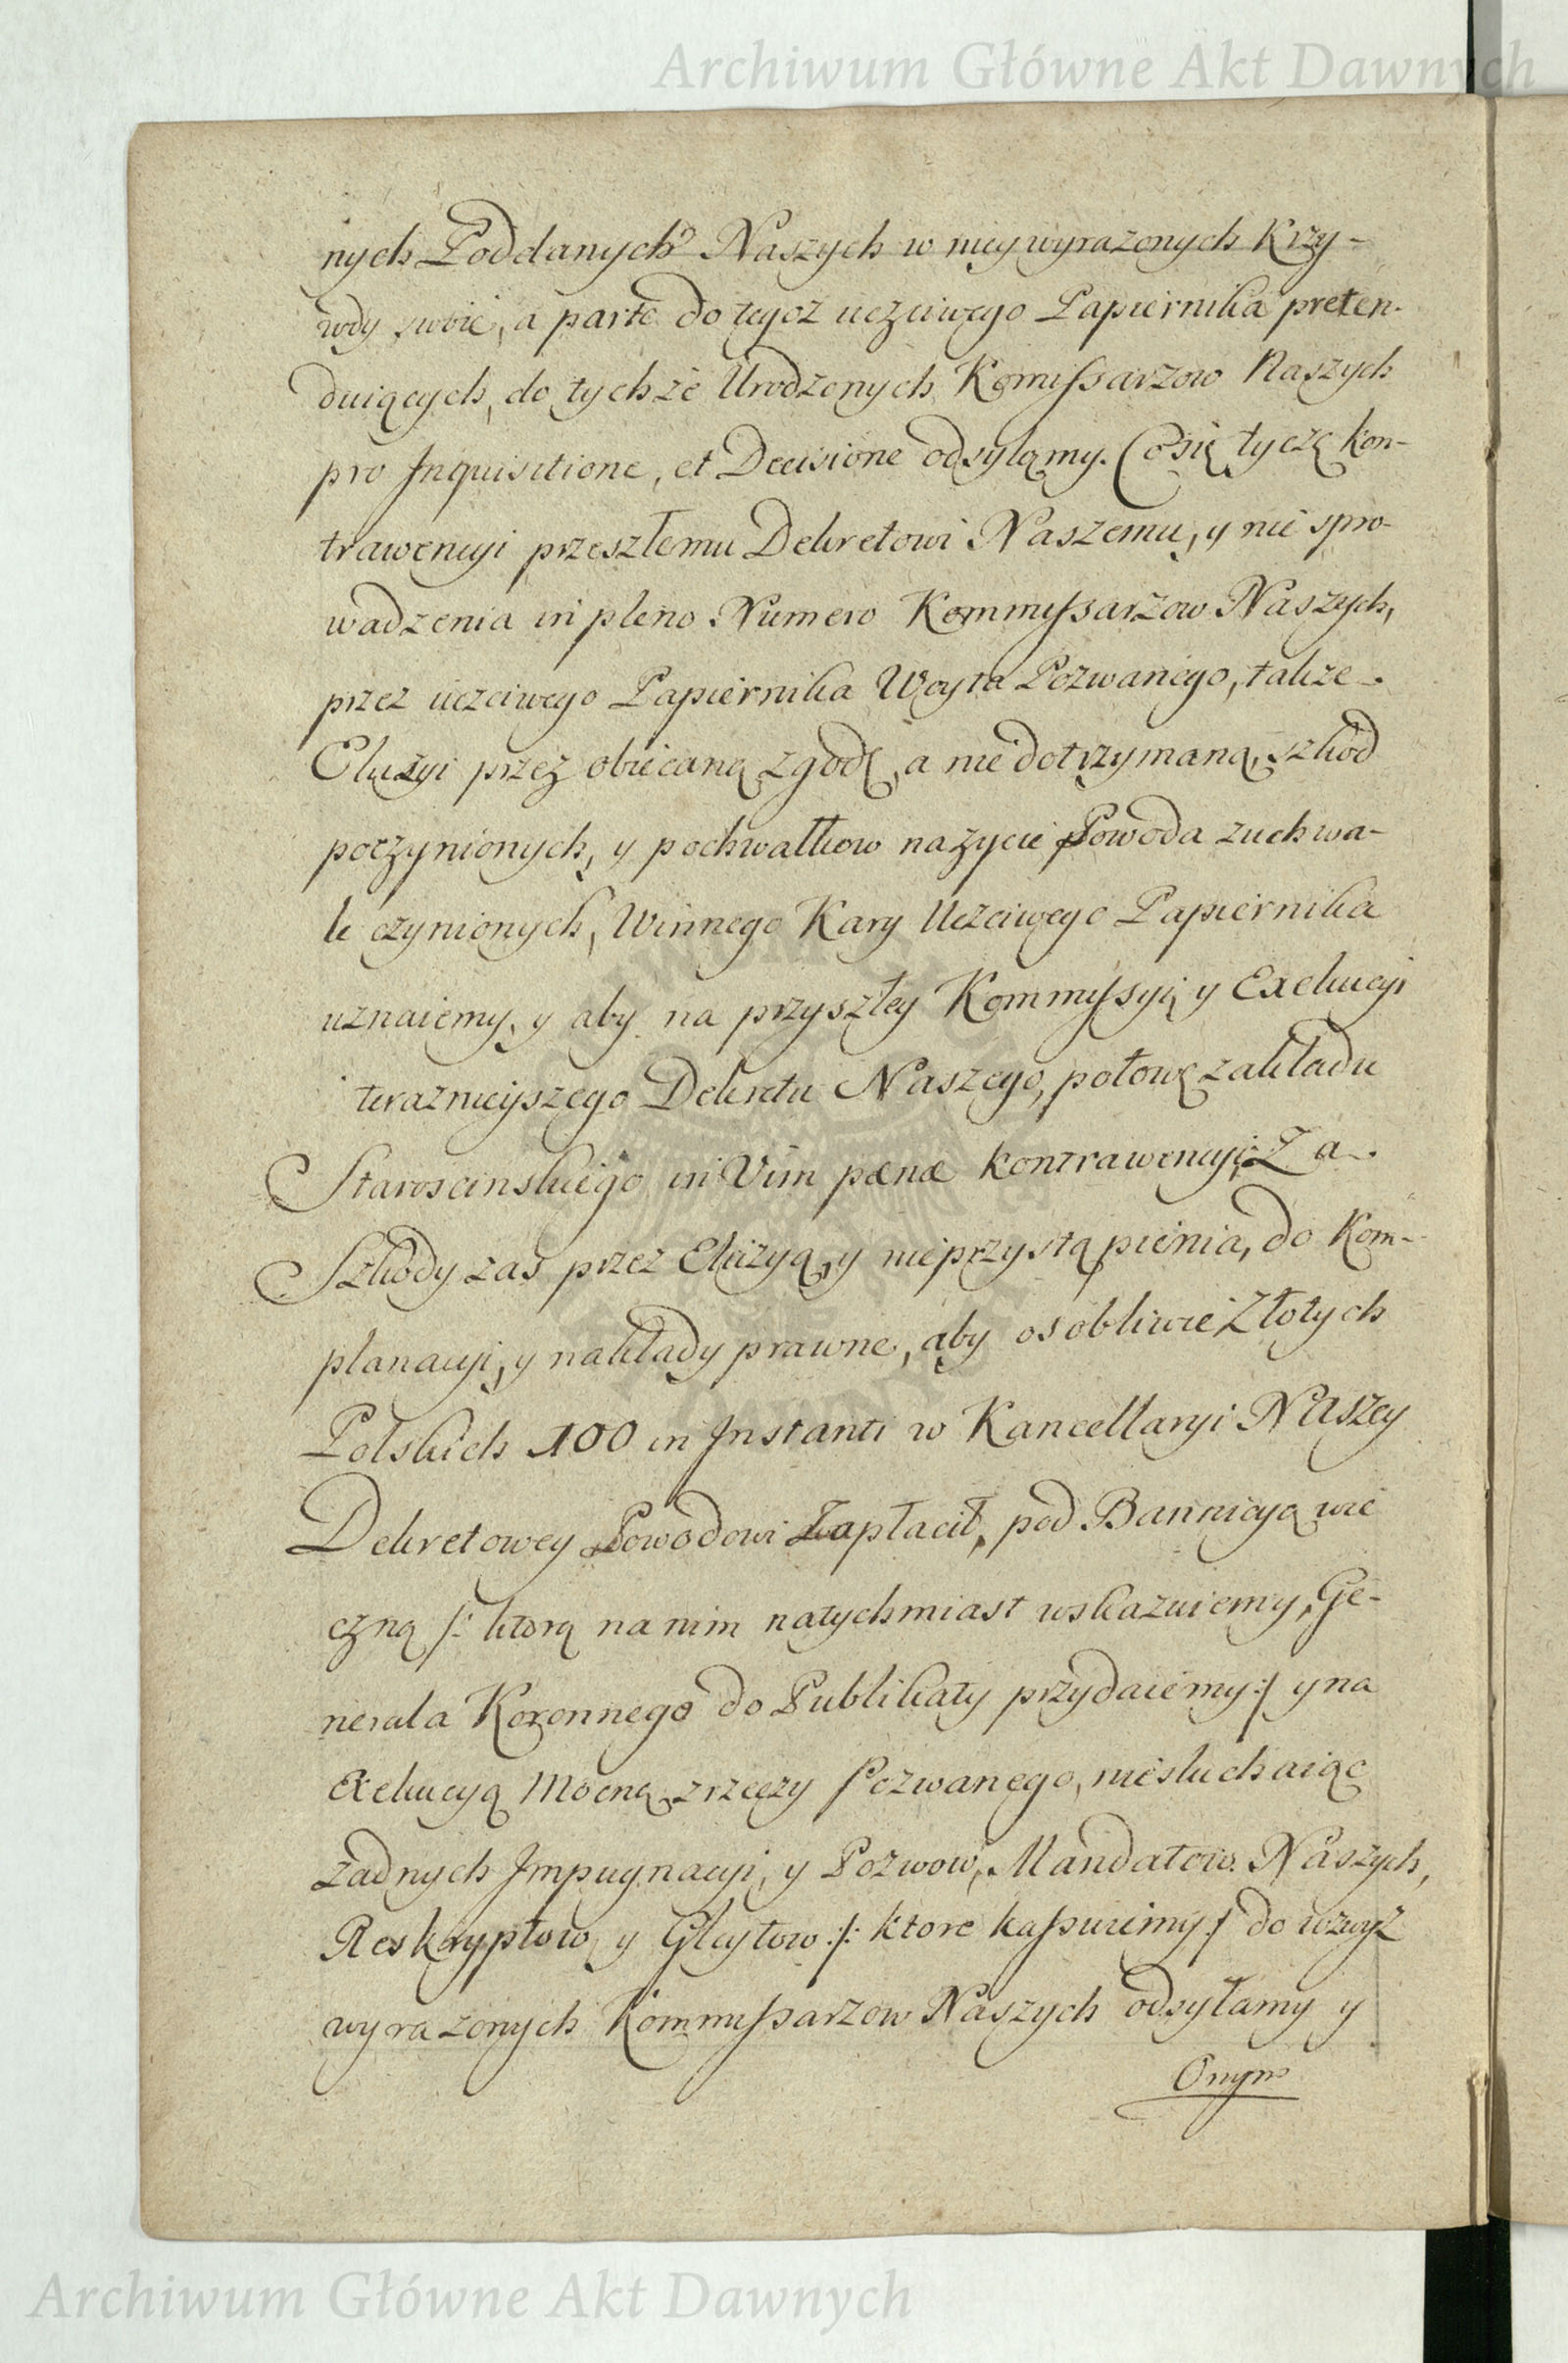 Archiwum Główne Akt Dawnych
nych Poddanych Naszych w niey wyrazonych Krzy-
wdy swoie, a parte do tegoż uczciwego Papiernika preten-
duiących, do tychże Urodzonych Komissarzow Naszych
pro Inquisitione, et Decisione odsyłamy. Co się tycze kon-
trawencyi przeszłemu Dekretowi Naszemu, y nie spro-
wadzenia in pleno Numero Kommissarzow Naszych,
przez uczciwego Papiernika Woyta Pozwanego, także
Eluzyi przez obiecaną zgodę, a niedotrzymaną, szkod
poczynionych, y pochwałkow na zycie Powoda zuchwa-
le czynionych, Winnego Kary Uczciwego Papiernika
uznaiemy, y aby na przyszłey Kommissyi y Exekucyi
teraznieyszego Dekretu Naszego, połowę zakładu
Staroscinskiego in Vim pænæ kontrawencyi, Za
Szkody zas przez Eluzyą, y nieprzystąpienia, do Kom-
planacyi, y nakłady prawne, aby osobliwie Złotych
Polskich 100 in Instanti w Kancellaryi Naszey
Dekretowey Powodowi Zapłacił, pod Bannicyą wie
czną /: ktorą na nim natychmiast wskazuiemy, Ge-
nerała Koronnego do Publikaty przydaiemy :/ y na
Exekucyą Mocną z rzeczy Pozwanego, niesłuchaiąc
żadnych Impugnacyi, y Pozwow, Mandatow Naszych,
Reskryptow, y Gleytow /: ktore kassuiemy :/ do wzwyż
wyrazonych Kommissarzow Naszych odsyłamy y
Onym
Archiwum Główne Akt Dawnych